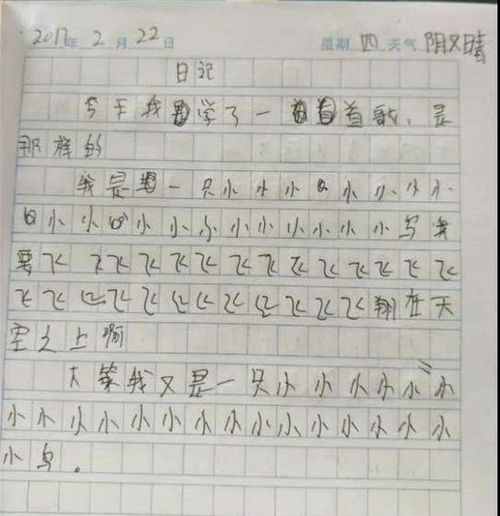 2017年2月22日 星期四天气阴又晴
日记
今天我学了一首歌，是
那样的
我是一只小小小小小小小
小小小小小小小小小小小鸟我
要飞飞飞飞飞飞飞飞飞飞飞飞飞
飞飞飞飞飞飞飞飞飞飞飞飞翔在天
空之上啊
大笨我又是一只小小小小小小
小小小小小小小小小小小小小小小
小鸟。